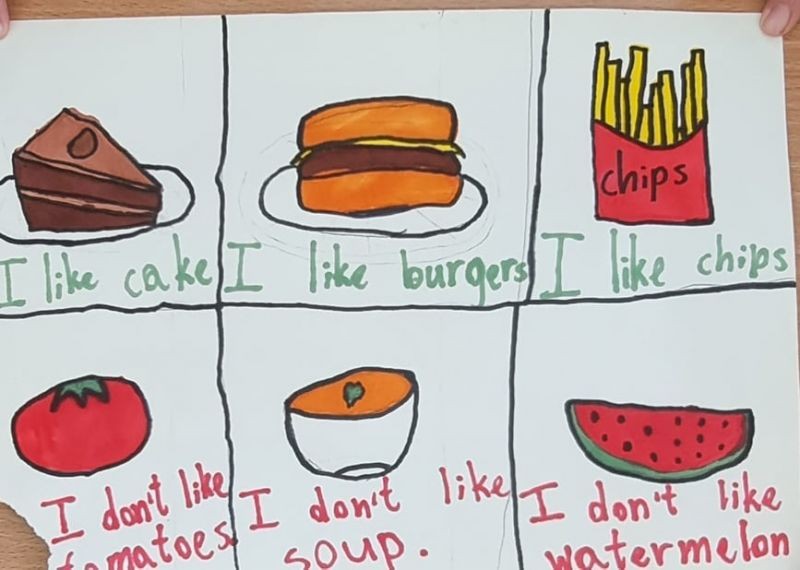 chips
I like cake
I like burgers
I like chips
I don't like
tomatoes.
I don't like
soup.
I don't like
watermelon